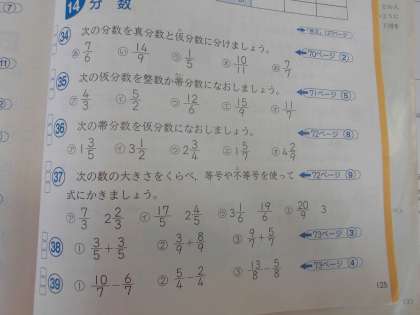 14 分数
34 次の分数を真分数と仮分数に分けましょう。
70ページ ②
㋐ 7/6 ㋑ 14/9 ㋒ 1/5 ㋓ 10/11 ㋔ 7/7
35 次の仮分数を整数か帯分数になおしましょう。
71ページ ⑤
㋐ 4/3 ㋑ 5/2 ㋒ 12/6 ㋓ 15/9 ㋔ 11/7
36 次の帯分数を仮分数になおしましょう。
72ページ ⑧
㋐ 1 3/5 ㋑ 3 1/2 ㋒ 2 3/4 ㋓ 1 5/7 ㋔ 4 2/9
37 次の数の大きさをくらべ，等号や不等号を使って
72ページ ⑨
式にかきましょう。
㋐ 7/3 2 2/3 ㋑ 17/5 2 4/5 ㋒ 3 1/6 19/6 ㋓ 20/9 3
73ページ ③
38 ① 3/5 + 3/5 ② 3/9 + 8/9 ③ 9/7 + 5/7
73ページ ④
39 ① 10/7 − 6/7 ② 5/4 − 2/4 ③ 13/8 − 5/8
125